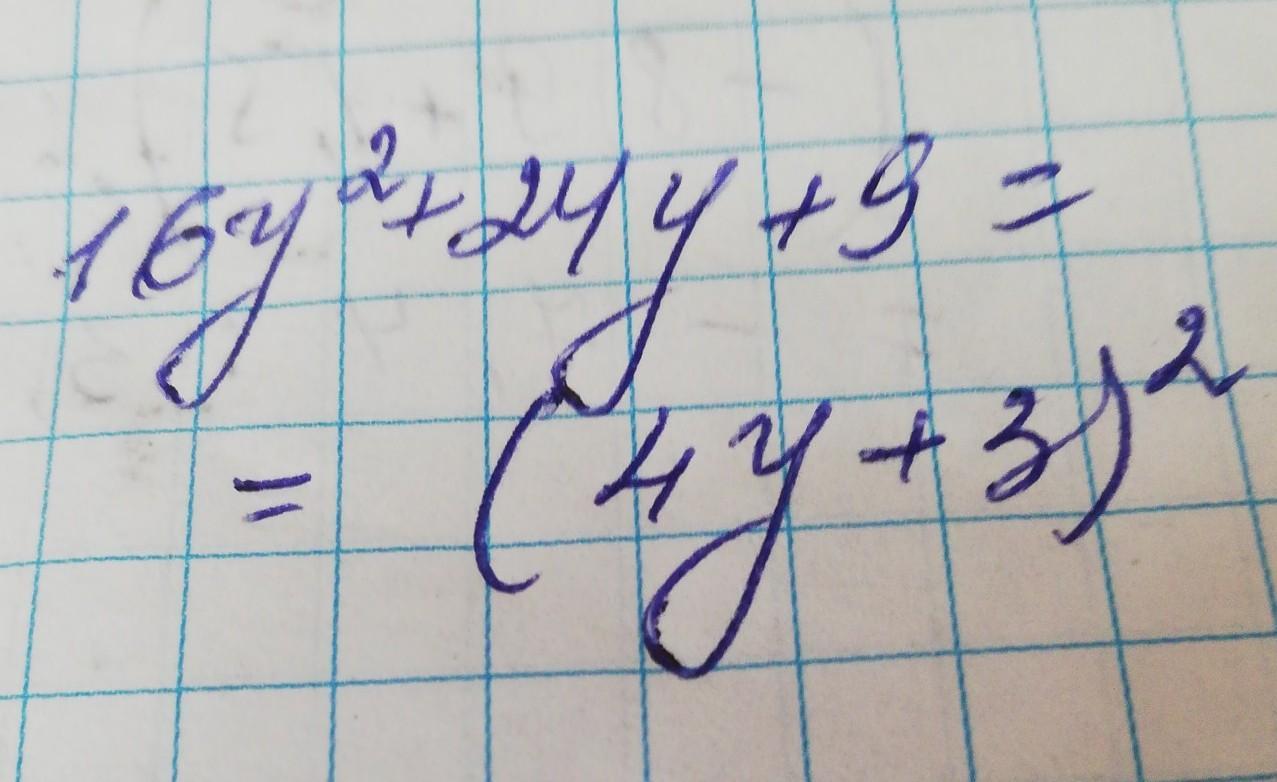 16y²+24y+9=
= (4y+3)²